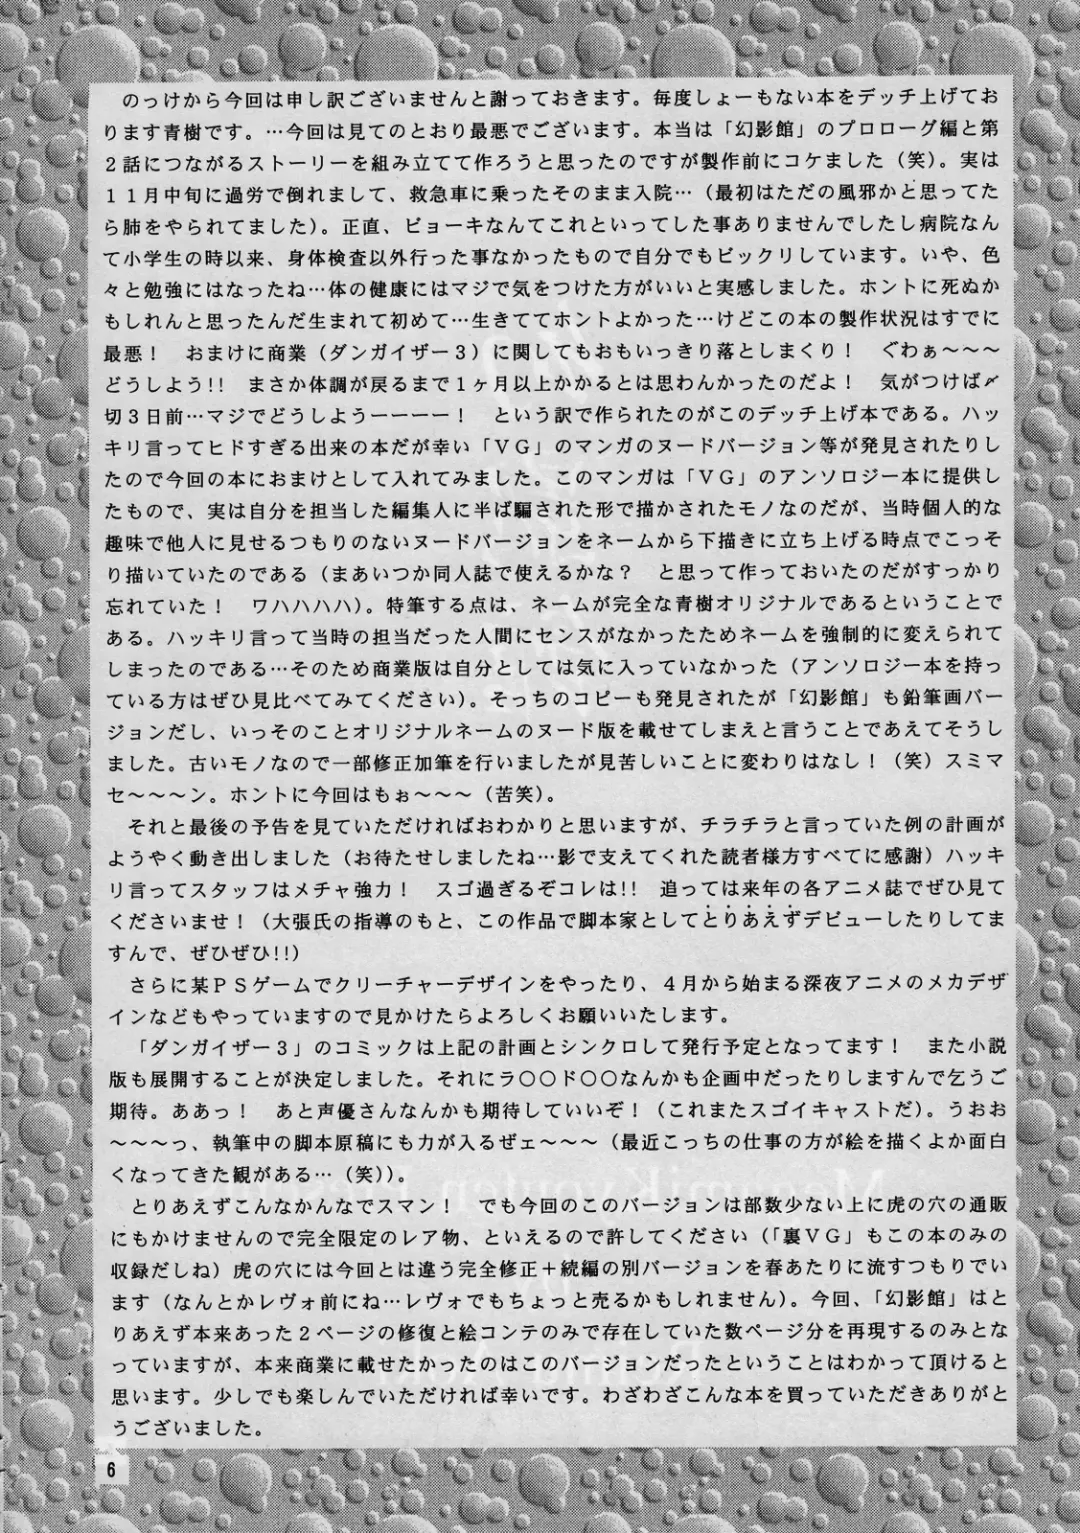 のっけから今回は申し訳ございませんと謝っておきます。毎度しょーもない本をデッチ上げてお
ります青樹です。…今回は見てのとおり最悪でございます。本当は「幻影館」のプロローグ編と第
２話につながるストーリーを組み立てて作ろうと思ったのですが製作前にコケました（笑）。実は
１１月中旬に過労で倒れまして、救急車に乗ったそのまま入院…（最初はただの風邪かと思ってた
ら肺をやられてました）。正直、ビョーキなんてこれといってした事ありませんでしたし病院なん
て小学生の時以来、身体検査以外行った事なかったもので自分でもビックリしています。いや、色
々と勉強にはなったね…体の健康にはマジで気をつけた方がいいと実感しました。ホントに死ぬか
もしれんと思ったんだ生まれて初めて…生きててホントよかった…けどこの本の製作状況はすでに
最悪！　おまけに商業（ダンガイザー３）に関してもおもいっきり落としまくり！　ぐわぁ～～～
どうしよう!!　まさか体調が戻るまで１ヶ月以上かかるとは思わんかったのだよ！　気がつけば〆
切３日前…マジでどうしようーーーー！　という訳で作られたのがこのデッチ上げ本である。ハッ
キリ言ってヒドすぎる出来の本だが幸い「ＶＧ」のマンガのヌードバージョン等が発見されたりし
たので今回の本におまけとして入れてみました。このマンガは「ＶＧ」のアンソロジー本に提供し
たもので、実は自分を担当した編集人に半ば騙された形で描かされたモノなのだが、当時個人的な
趣味で他人に見せるつもりのないヌードバージョンをネームから下描きに立ち上げる時点でこっそ
り描いていたのである（まあいつか同人誌で使えるかな？　と思って作っておいたのだがすっかり
忘れていた！　ワハハハハ）。特筆する点は、ネームが完全な青樹オリジナルであるということで
ある。ハッキリ言って当時の担当だった人間にセンスがなかったためネームを強制的に変えられて
しまったのである…そのため商業版は自分としては気に入っていなかった（アンソロジー本を持っ
ている方はぜひ見比べてみてください）。そっちのコピーも発見されたが「幻影館」も鉛筆画バー
ジョンだし、いっそのことオリジナルネームのヌード版を載せてしまえと言うことであえてそうし
ました。古いモノなので一部修正加筆を行いましたが見苦しいことに変わりはなし！（笑）スミマ
セ～～～ン。ホントに今回はもぉ～～～（苦笑）。
それと最後の予告を見ていただければおわかりと思いますが、チラチラと言っていた例の計画が
ようやく動き出しました（お待たせしましたね…影で支えてくれた読者様方すべてに感謝）ハッキ
リ言ってスタッフはメチャ強力！　スゴ過ぎるぞコレは!!　追っては来年の各アニメ誌でぜひ見て
くださいませ！（大張氏の指導のもと、この作品で脚本家としてとりあえずデビューしたりしてま
すんで、ぜひぜひ!!）
さらに某ＰＳゲームでクリーチャーデザインをやったり、４月から始まる深夜アニメのメカデザ
インなどもやっていますので見かけたらよろしくお願いいたします。
「ダンガイザー３」のコミックは上記の計画とシンクロして発行予定となってます！　また小説
版も展開することが決定しました。それにラ〇〇ド〇〇なんかも企画中だったりしますんで乞うご
期待。ああっ！　あと声優さんなんかも期待していいぞ！（これまたスゴイキャストだ）。うおお
～～～っ、執筆中の脚本原稿にも力が入るぜェ～～～（最近こっちの仕事の方が絵を描くよか面白
くなってきた観がある…（笑））。
とりあえずこんなかんなでスマン！　でも今回のこのバージョンは部数少ない上に虎の穴の通販
にもかけませんので完全限定のレア物、といえるので許してください（「裏ＶＧ」もこの本のみの
収録だしね）虎の穴には今回とは違う完全修正＋続編の別バージョンを春あたりに流すつもりでい
ます（なんとかレヴォ前にね…レヴォでもちょっと売るかもしれません）。今回、「幻影館」はと
りあえず本来あった２ページの修復と絵コンテのみで存在していた数ページ分を再現するのみとな
っていますが、本来商業に載せたかったのはこのバージョンだったということはわかって頂けると
思います。少しでも楽しんでいただければ幸いです。わざわざこんな本を買っていただきありがと
うございました。
6